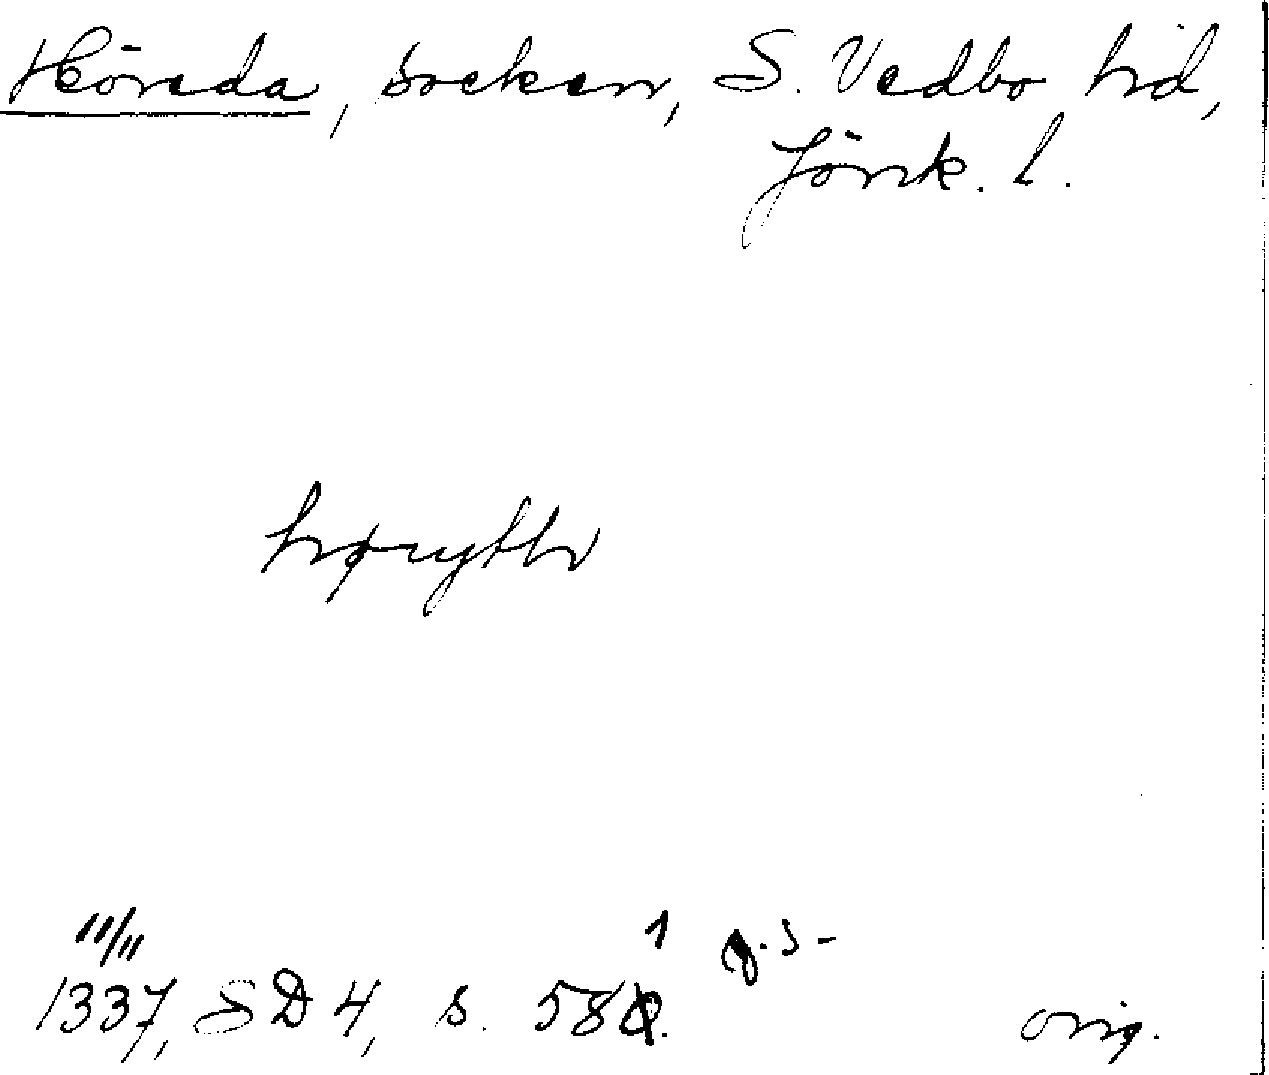 Höreda, socken, S. Vedbo hd,
Jönk. l.
høryth
11/11
1337, SD 4, s. 581.
orig.